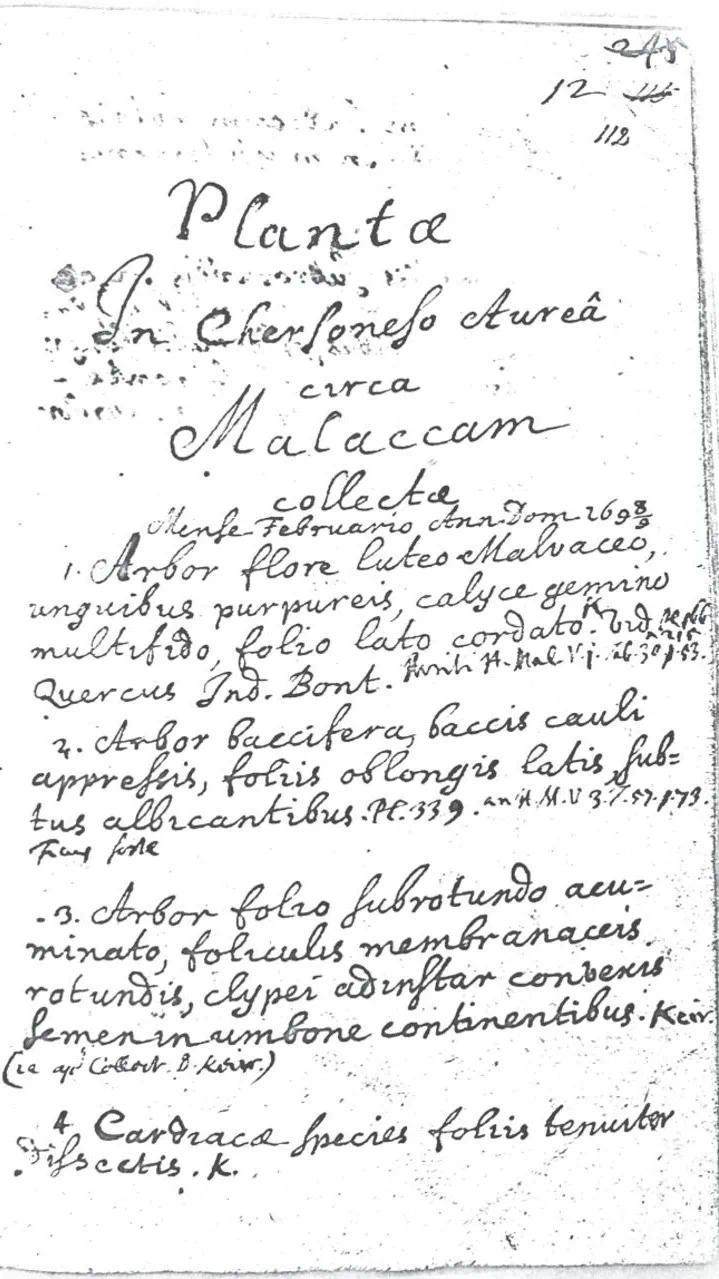 245
12 116
112
Plantæ
In Chersoneso Aureâ
circa
Malaccam
collectæ
Mense Februario Ann. Dom 169 8/9
1. Arbor flore luteo Malvaceo,
unguibus purpureis, calyce gemino
multifido, folio lato cordato. K. vid.
Quercus Ind. Bont. H. Mal. V. 1. p. 53.
2. Arbor baccifera, baccis cauli
appressis, foliis oblongis latis sub=
tus albicantibus. Pt. 339. an H. M. V 3. T. 57. p. 73.
forte
3. Arbor folio subrotundo acu=
minato, foliculis membranaceis
rotundis, clypei adinstar convexis
semen in umbone continentibus. Keir.
Collect. D. Keir.)
4 Cardiacæ species foliis tenuiter
dissectis. K.